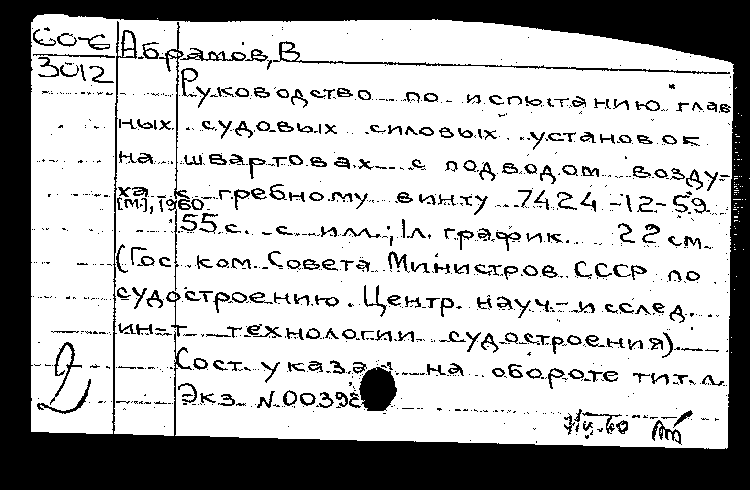 60-6 Абрамов, В
3012 Руководство по испытанию глав
ных судовых силовых установок
на швартовах с подводом возду-
ха к гребному винту 7424-12-59
[М.], 1960
55 с. с илл.; 1л. график. 22 см.
(Гос. ком. Совета Министров СССР по
судостроению. Центр. науч.-исслед.
ин-т технологии судостроения).
Сост. указан на обороте тит. л.
Экз. N 00398
2